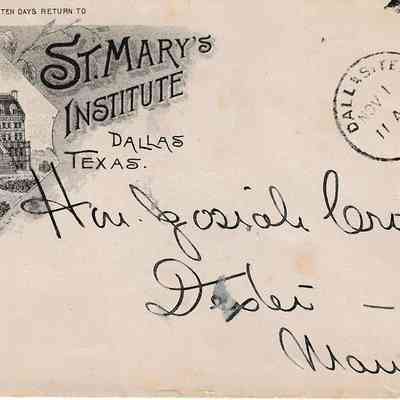 TEN DAYS RETURN TO
ST. MARY'S
INSTITUTE
DALLAS
TEXAS.
DALLAS, TE
NOV 1
11 A
Hon. Josiah Cro
Dexter —